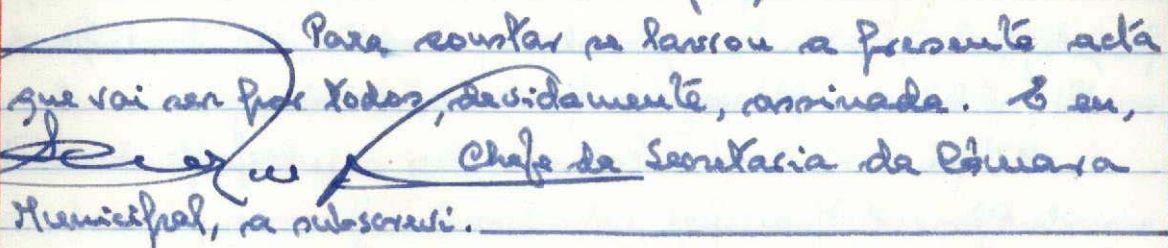 Para constar se lavrou a presente acta
que vai ser por todos, devidamente, assinada. E eu,
Chefe da Secretaria da Câmara
Municipal, a subscrevi.